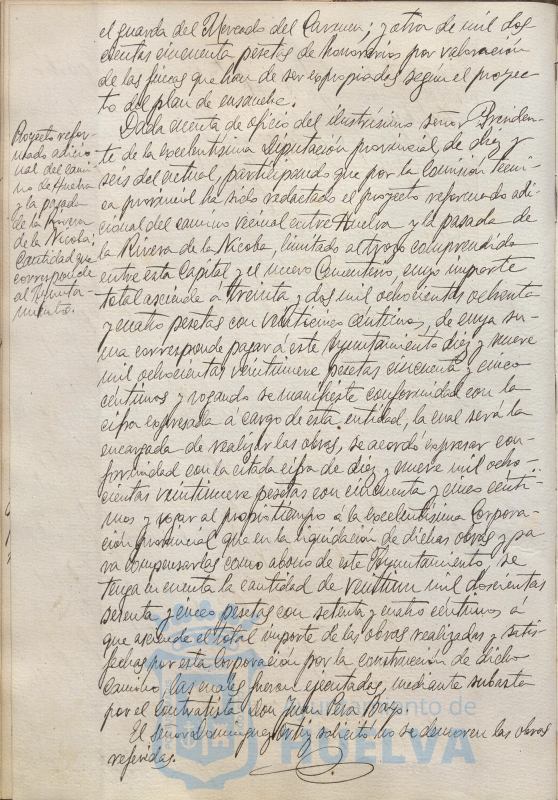 el guarda del Mercado del Carmen; y otra de mil dos
cientas cincuenta pesetas de honorarios por valoración
de las fincas que han de ser expropiadas según el proyec-
to del plan de ensanche.
Proyecto refor-
mado adicio
nal del cami
no de Huelva
y la pasada
de la Rivera
de la Nicoba;
Cantidad que
corresponde
al Ayunta-
miento.
Dada cuenta de oficio del ilustrísimo señor Presiden-
te de la Excelentísima Diputación provincial de diez y
seis del actual, participando que por la Comisión técni
ca provincial ha sido redactado el proyecto reformado adi-
cional del camino vecinal entre Huelva y la pasada de
la Rivera de la Nicoba, limitado al trozo comprendido
entre esta Capital y el nuevo Cementerio, cuyo importe
total asciende á treinta y dos mil ochocientas ochenta
y cuatro pesetas con veinticinco centimos, de cuya su-
ma corresponde pagar á este Ayuntamiento diez y nueve
mil ochocientas veintinueve pesetas cincuenta y cinco
centimos y rogando se manifieste conformidad con la
cifra expresada á cargo de esta entidad, la cual será la
encargada de realizar las obras, se acordó expresar con-
formidad con la citada cifra de diez y nueve mil ocho-
cientas veintinueve pesetas con cincuenta y cinco centi-
mos y rogar al propio tiempo á la Excelentísima Corpora-
ción provincial que en la liquidación de dichas obras y pa-
ra compensarlas como abono de este Ayuntamiento, se
tenga en cuenta la cantidad de veintiun mil doscientas
setenta y cinco pesetas con setenta y cuatro centimos á
que asciende el total importe de las obras realizadas y satis-
fechas por esta Corporación por la construcción de dicho
camino, las cuales fueron ejecutadas, mediante subasta
por el contratista Don Juan
El Señor Dominguez Ortiz solicitó no se demoren las obras
referidas.
Ayuntamiento de
HUELVA